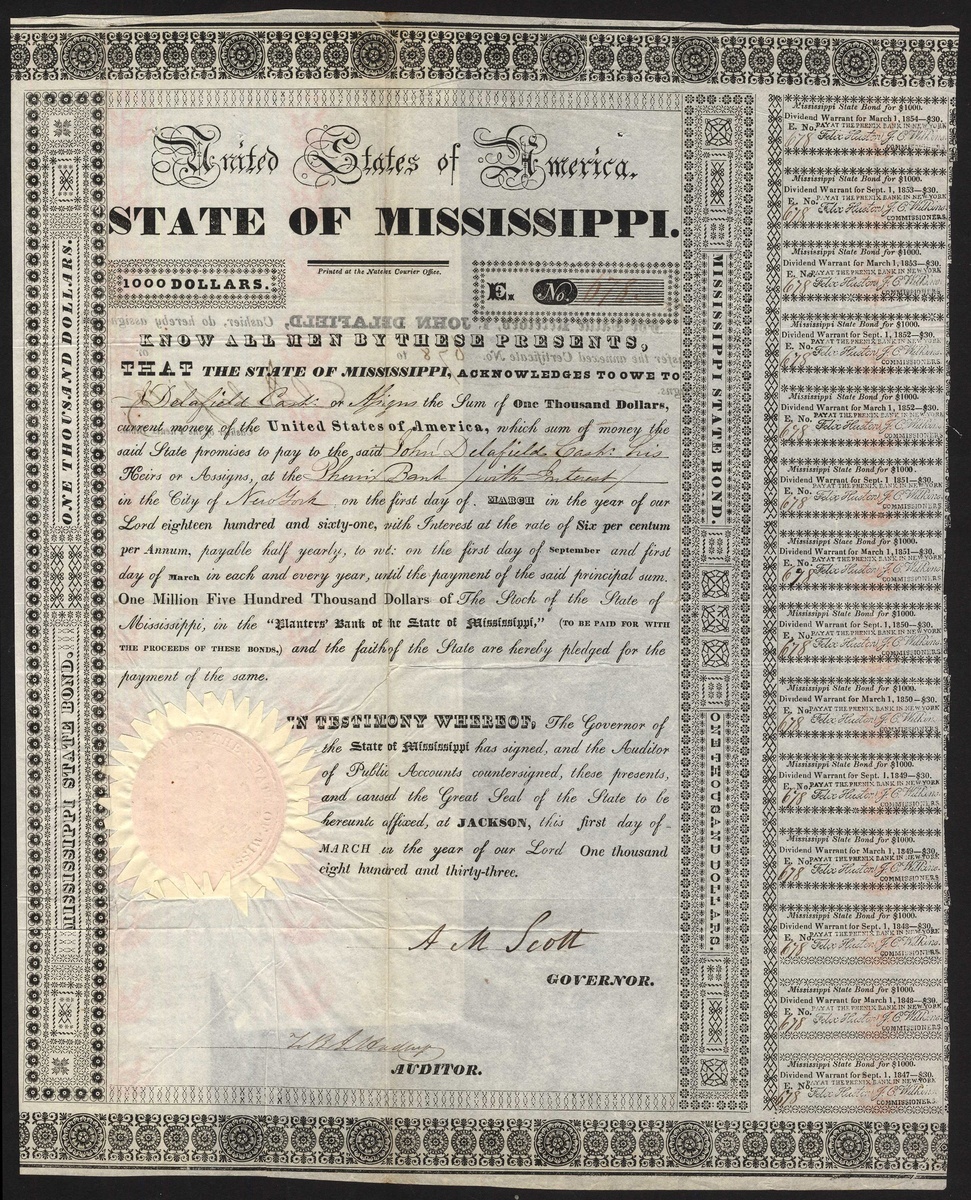 United States of America.
STATE OF MISSISSIPPI.
Printed at the Natchez Courier Office.
1000 DOLLARS.
E. No. 678
KNOW ALL MEN BY THESE PRESENTS,
THAT THE STATE OF MISSISSIPPI, ACKNOWLEDGES TO OWE TO
J Delafield Cash: or Assigns the Sum of One Thousand Dollars,
current money of the United States of America, which sum of money the
said State promises to pay to the said John Delafield Cash: his
Heirs or Assigns, at the Phenix Bank with Interest
in the City of New York, on the first day of MARCH in the year of our
Lord eighteen hundred and sixty-one, with Interest at the rate of Six per centum
per Annum, payable half yearly, to wt: on the first day of September and first
day of March in each and every year, until the payment of the said principal sum.
One Million Five Hundred Thousand Dollars of The Stock of the State of
Mississippi, in the "Planters' Bank of the State of Mississippi," (TO BE PAID FOR WITH
THE PROCEEDS OF THESE BONDS,) and the faith of the State are hereby pledged for the
payment of the same.
IN TESTIMONY WHEREOF, The Governor of
the State of Mississippi has signed, and the Auditor
of Public Accounts countersigned, these presents,
and caused the Great Seal of the State to be
hereunto affixed, at JACKSON, this first day of
MARCH in the year of our Lord One thousand
eight hundred and thirty-three.
A M Scott
GOVERNOR.
AUDITOR.
MISSISSIPPI STATE BOND
ONE THOUSAND DOLLARS.
MISSISSIPPI STATE BOND.
ONE THOUSAND DOLLARS.
Mississippi State Bond for $1000.
Dividend Warrant for March 1, 1854—$30.
E. No. PAY AT THE PHENIX BANK IN NEW YORK
678 Felix Huston J. C. Wilkins
COMMISSIONERS.
Mississippi State Bond for $1000.
Dividend Warrant for Sept. 1, 1853—$30.
E. No. PAY AT THE PHENIX BANK IN NEW YORK
678 Felix Huston J. C. Wilkins
COMMISSIONERS.
Mississippi State Bond for $1000.
Dividend Warrant for March 1, 1853—$30.
E. No. PAY AT THE PHENIX BANK IN NEW YORK
678 Felix Huston J. C. Wilkins
COMMISSIONERS.
Mississippi State Bond for $1000.
Dividend Warrant for Sept. 1, 1852—$30.
E. No. PAY AT THE PHENIX BANK IN NEW YORK
678 Felix Huston J. C. Wilkins
COMMISSIONERS.
Mississippi State Bond for $1000.
Dividend Warrant for March 1, 1852—$30.
E. No. PAY AT THE PHENIX BANK IN NEW YORK
678 Felix Huston J. C. Wilkins
COMMISSIONERS.
Mississippi State Bond for $1000.
Dividend Warrant for Sept. 1, 1851—$30.
E. No. PAY AT THE PHENIX BANK IN NEW YORK
678 Felix Huston J. C. Wilkins
COMMISSIONERS.
Mississippi State Bond for $1000.
Dividend Warrant for March 1, 1851—$30.
E. No. PAY AT THE PHENIX BANK IN NEW YORK
678 Felix Huston J. C. Wilkins
COMMISSIONERS.
Mississippi State Bond for $1000.
Dividend Warrant for Sept. 1, 1850—$30.
E. No. PAY AT THE PHENIX BANK IN NEW YORK
678 Felix Huston J. C. Wilkins
COMMISSIONERS.
Mississippi State Bond for $1000.
Dividend Warrant for March 1, 1850—$30.
E. No. PAY AT THE PHENIX BANK IN NEW YORK
678 Felix Huston J. C. Wilkins
COMMISSIONERS.
Mississippi State Bond for $1000.
Dividend Warrant for Sept. 1, 1849—$30.
E. No. PAY AT THE PHENIX BANK IN NEW YORK
678 Felix Huston J. C. Wilkins
COMMISSIONERS.
Mississippi State Bond for $1000.
Dividend Warrant for March 1, 1849—$30.
E. No. PAY AT THE PHENIX BANK IN NEW YORK
678 Felix Huston J. C. Wilkins
COMMISSIONERS.
Mississippi State Bond for $1000.
Dividend Warrant for Sept. 1, 1848—$30.
E. No. PAY AT THE PHENIX BANK IN NEW YORK
678 Felix Huston J. C. Wilkins
COMMISSIONERS.
Mississippi State Bond for $1000.
Dividend Warrant for March 1, 1848—$30.
E. No. PAY AT THE PHENIX BANK IN NEW YORK
678 Felix Huston J. C. Wilkins
COMMISSIONERS.
Mississippi State Bond for $1000.
Dividend Warrant for Sept. 1, 1847—$30.
E. No. PAY AT THE PHENIX BANK IN NEW YORK
678 Felix Huston J. C. Wilkins
COMMISSIONERS.